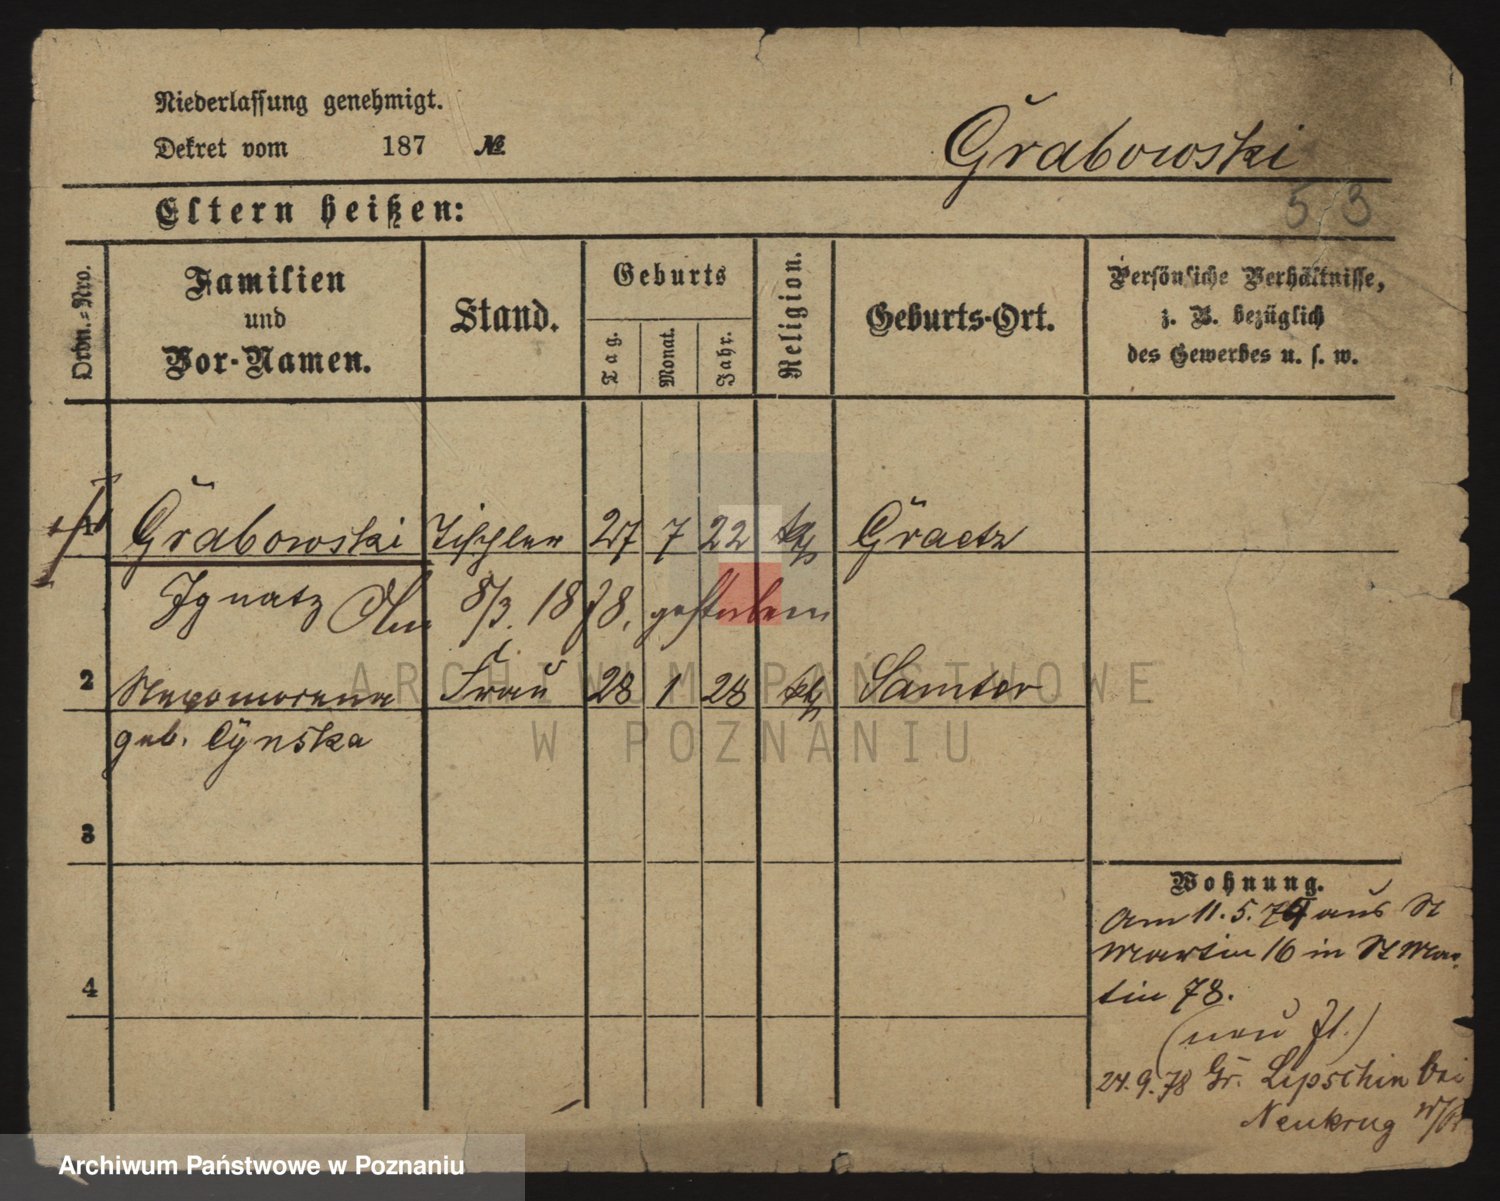 Niederlassung genehmigt.
Dekret vom 187 №
Grabowski
53
Eltern heißen:
Ordn.-Nro.
Familien
und
Vor-Namen.
Stand.
Geburts
Tag.
Monat.
Jahr.
Religion.
Geburts-Ort.
Persönliche Verhältnisse,
z. B. bezüglich
des Gewerbes u. s. w.
1 Grabowski Tischler 27 7 22 kth Graetz
Ignatz Am 8/3. 1878. gestorben
2 Nepomocena Frau 28 1 28 kth Samter
geb. Cynska
3
4
Wohnung.
Am 11. 5. 74 aus St
Martin 16 in St Mar-
tin 78.
(neu 71.)
24. 9. 78 Gr. Lipschin bei
Neukrug
ARCHIWUM PAŃSTWOWE
W POZNANIU
Archiwum Państwowe w Poznaniu